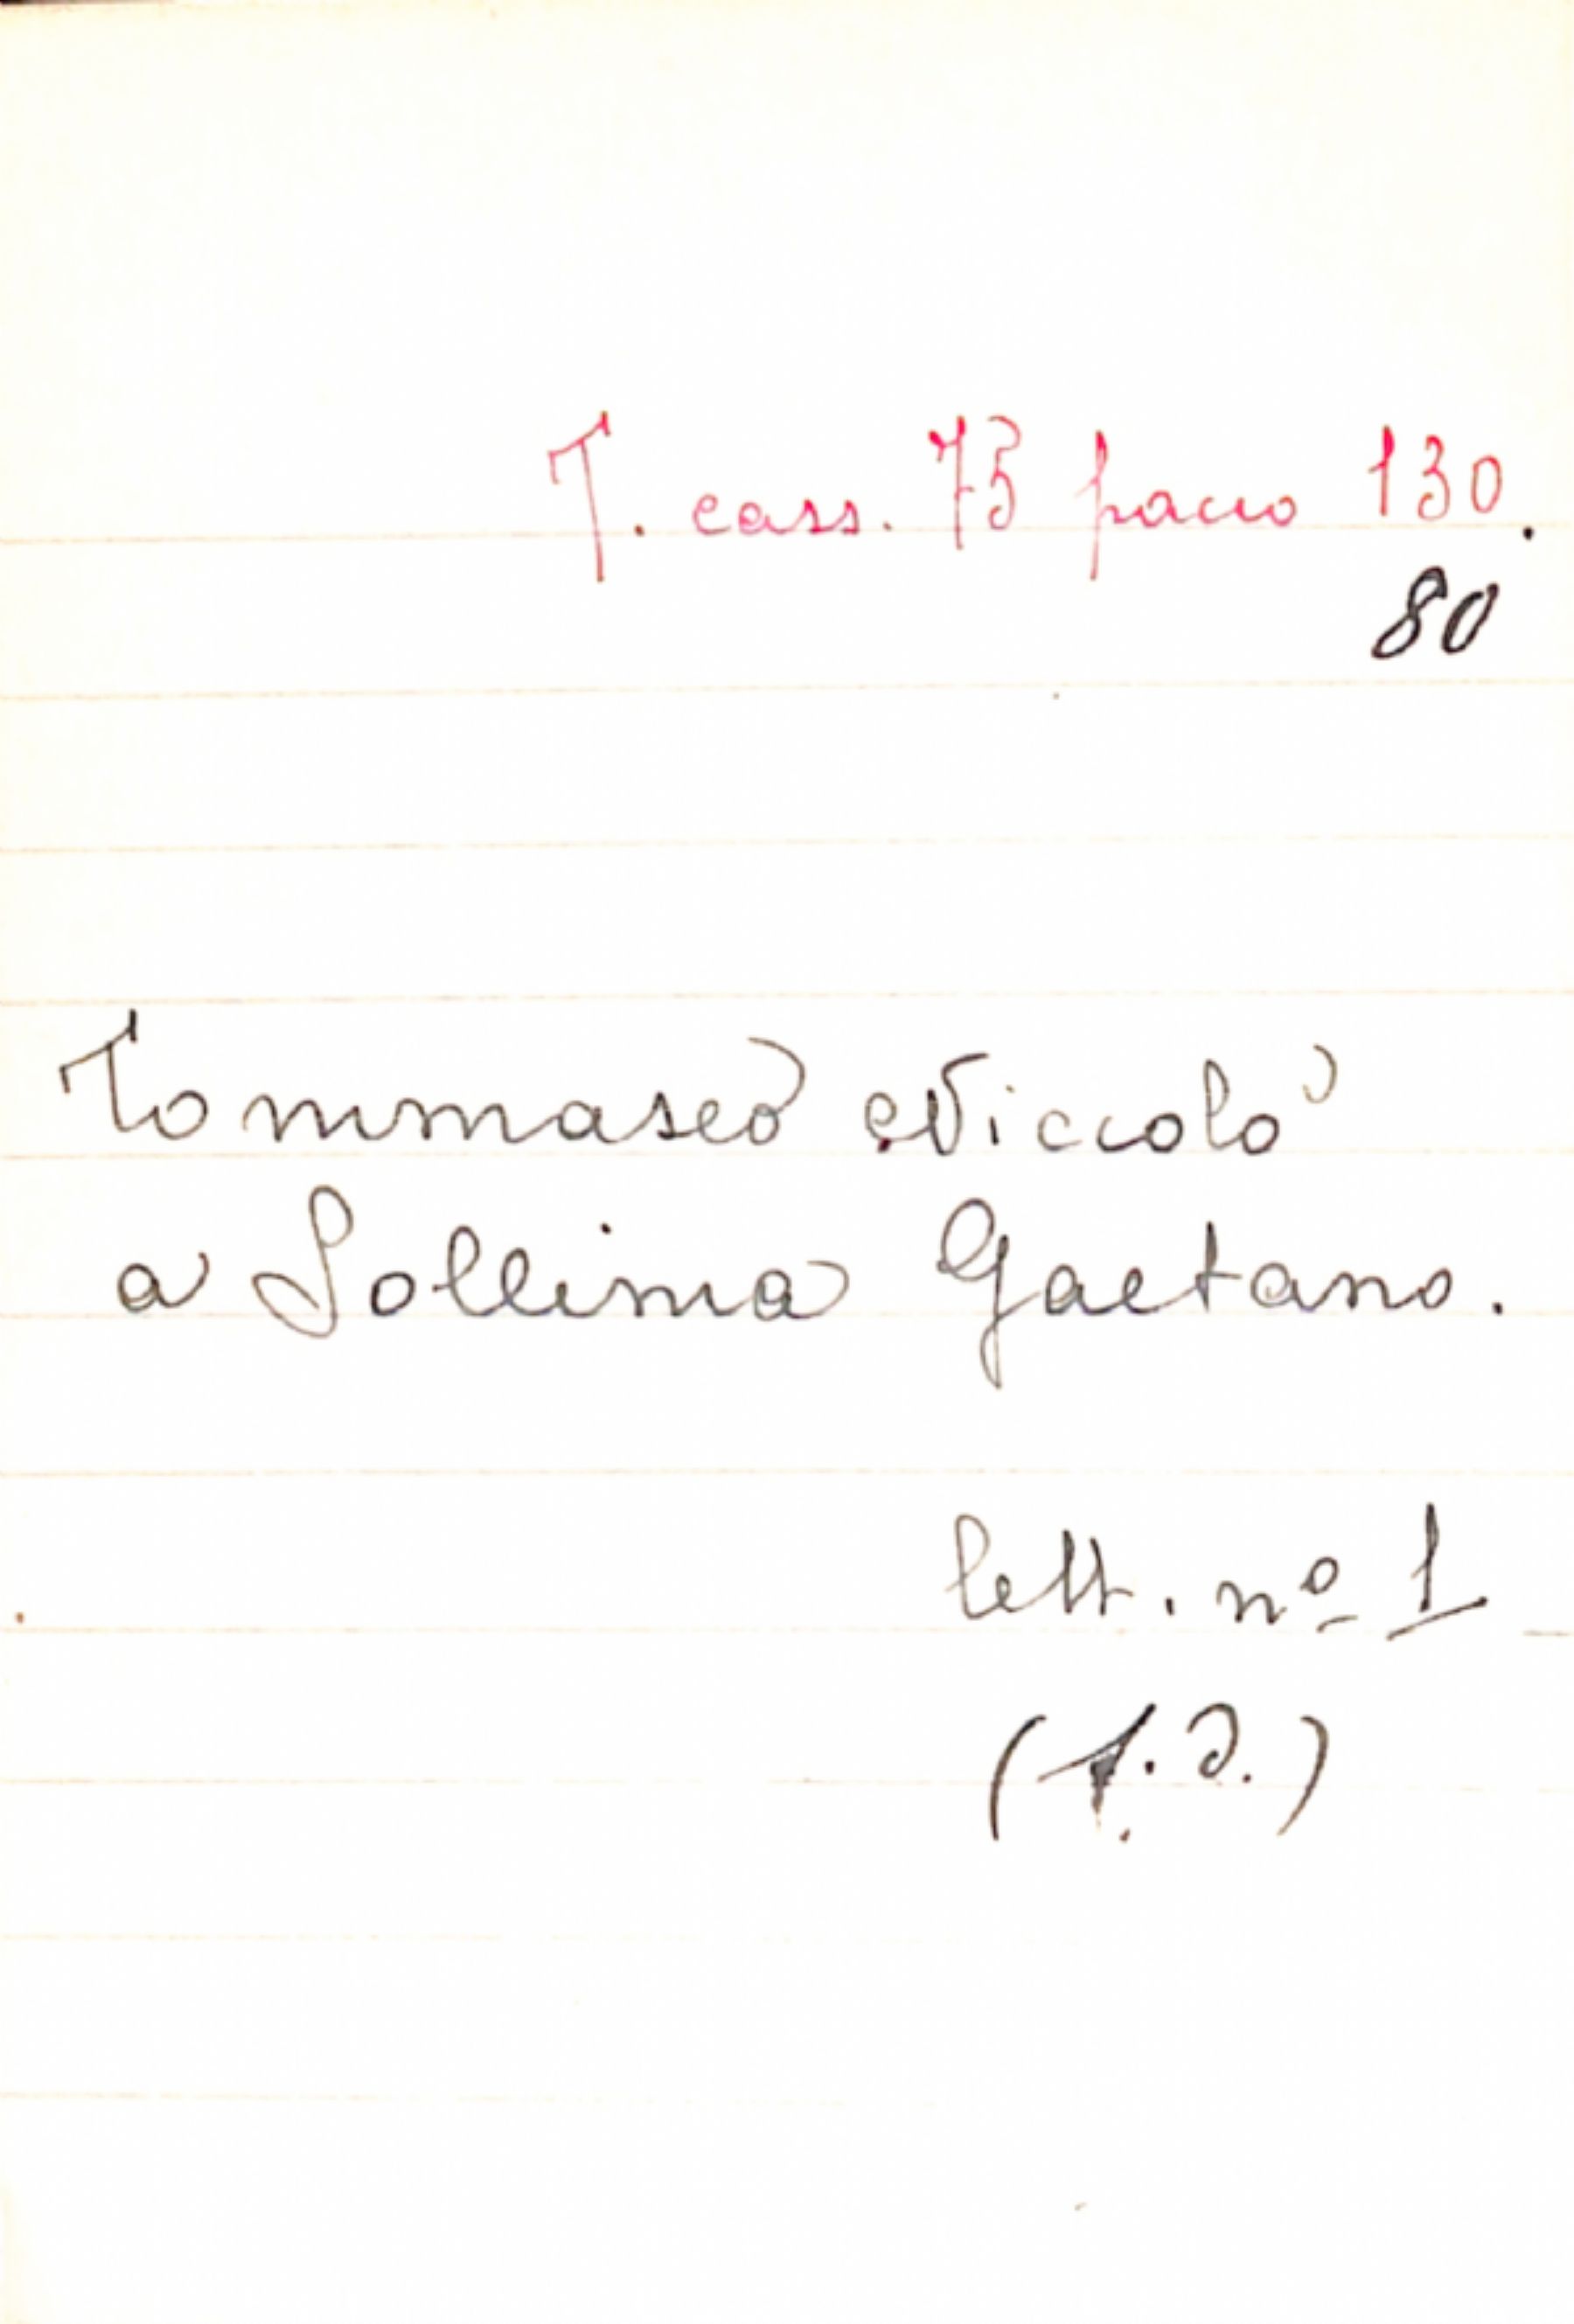 T. cass. 75 pacco 130.
80
Tommaseo Niccolò
a Sollima Gaetano.
lett. nº 1
(s.d.)